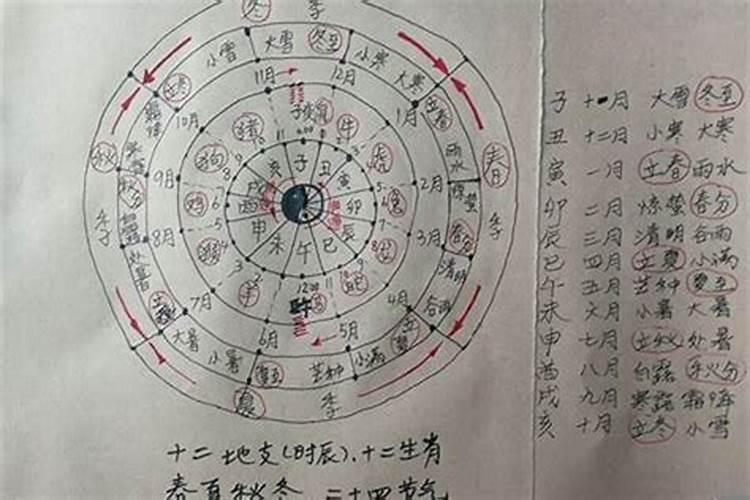 冬 季
小雪 大雪 冬至 小寒 大寒
立冬 11月 12月 立春
10月 子 鼠 1月
秋 猪 牛 雨水 春
狗 亥 子 丑 虎
9月 戌 寅 2月 惊蛰
秋分 鸡 酉 卯 兔
季 8月 申 辰 3月 春分 季
处暑 猴 未 午 巳 清明
立秋 7月 羊 12:00 蛇 4月 谷雨
大暑 午 立夏
小暑 6月 5月 小满
夏至 芒种
夏 季
子 十一月 大雪 冬至
丑 十二月 小寒 大寒
寅 一月 立春 雨水
卯 二月 惊蛰 春分
辰 三月 清明 谷雨
巳 四月 立夏 小满
午 五月 芒种 夏至
未 六月 小暑 大暑
申 七月 立秋 处暑
酉 八月 白露 秋分
戌 九月 寒露 霜降
亥 十月 立冬 小雪
十二地支(时辰)、十二生肖
春夏秋冬 二十四节气